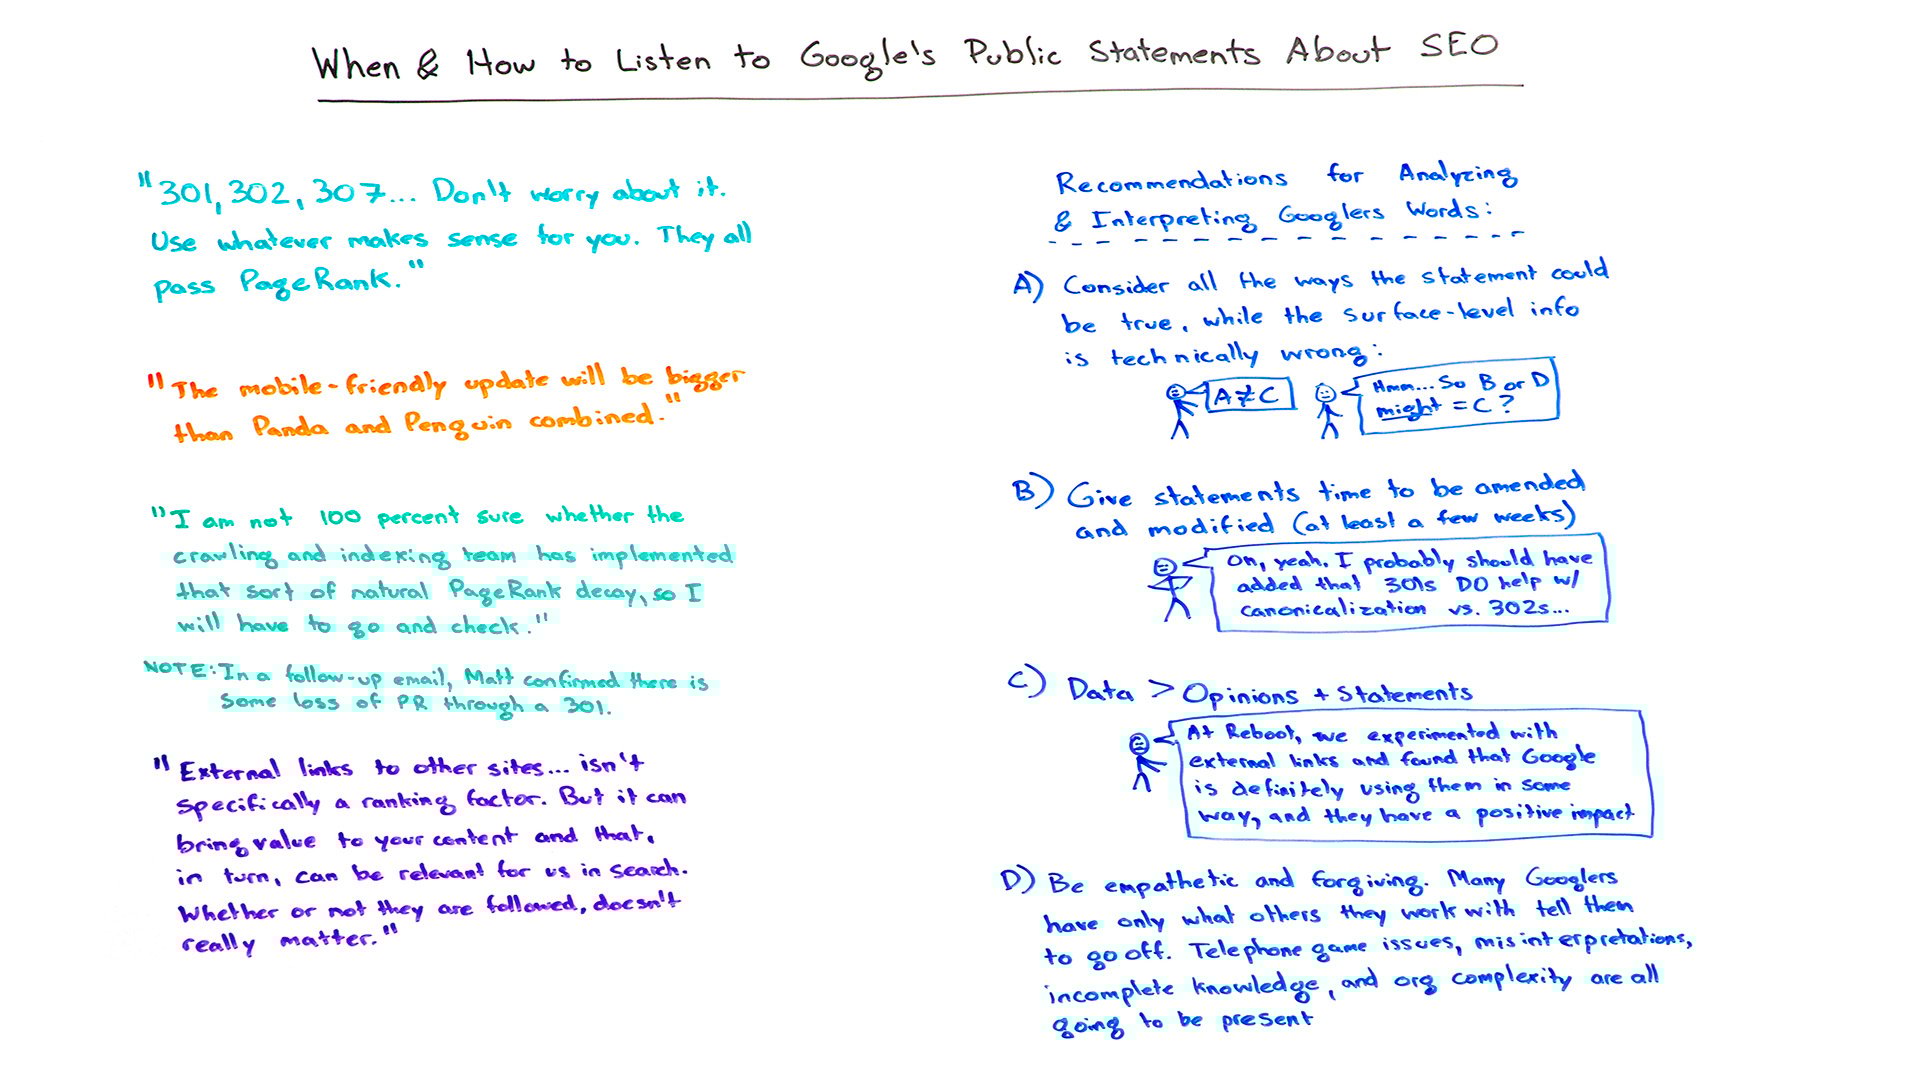 When & How to Listen to Google's Public Statements About SEO
"301, 302, 307... Don't worry about it.
Use whatever makes sense for you. They all
pass PageRank."
"The mobile-friendly update will be bigger
than Panda and Penguin combined."
"I am not 100 percent sure whether the
crawling and indexing team has implemented
that sort of natural PageRank decay, so I
will have to go and check."
NOTE: In a follow-up email, Matt confirmed there is
some loss of PR through a 301.
"External links to other sites... isn't
specifically a ranking factor. But it can
bring value to your content and that,
in turn, can be relevant for us in search.
Whether or not they are followed, doesn't
really matter."
Recommendations for Analyzing
& Interpreting Googlers Words:
A) Consider all the ways the statement could
be true, while the surface-level info
is technically wrong:
A ≠ C
Hmm... So B or D
might = C?
B) Give statements time to be amended
and modified (at least a few weeks)
Oh, yeah. I probably should have
added that 301s DO help w/
canonicalization vs. 302s...
C) Data > Opinions + Statements
At Reboot, we experimented with
external links and found that Google
is definitely using them in some
way, and they have a positive impact
D) Be empathetic and forgiving. Many Googlers
have only what others they work with tell them
to go off. Telephone game issues, misinterpretations,
incomplete knowledge, and org complexity are all
going to be present